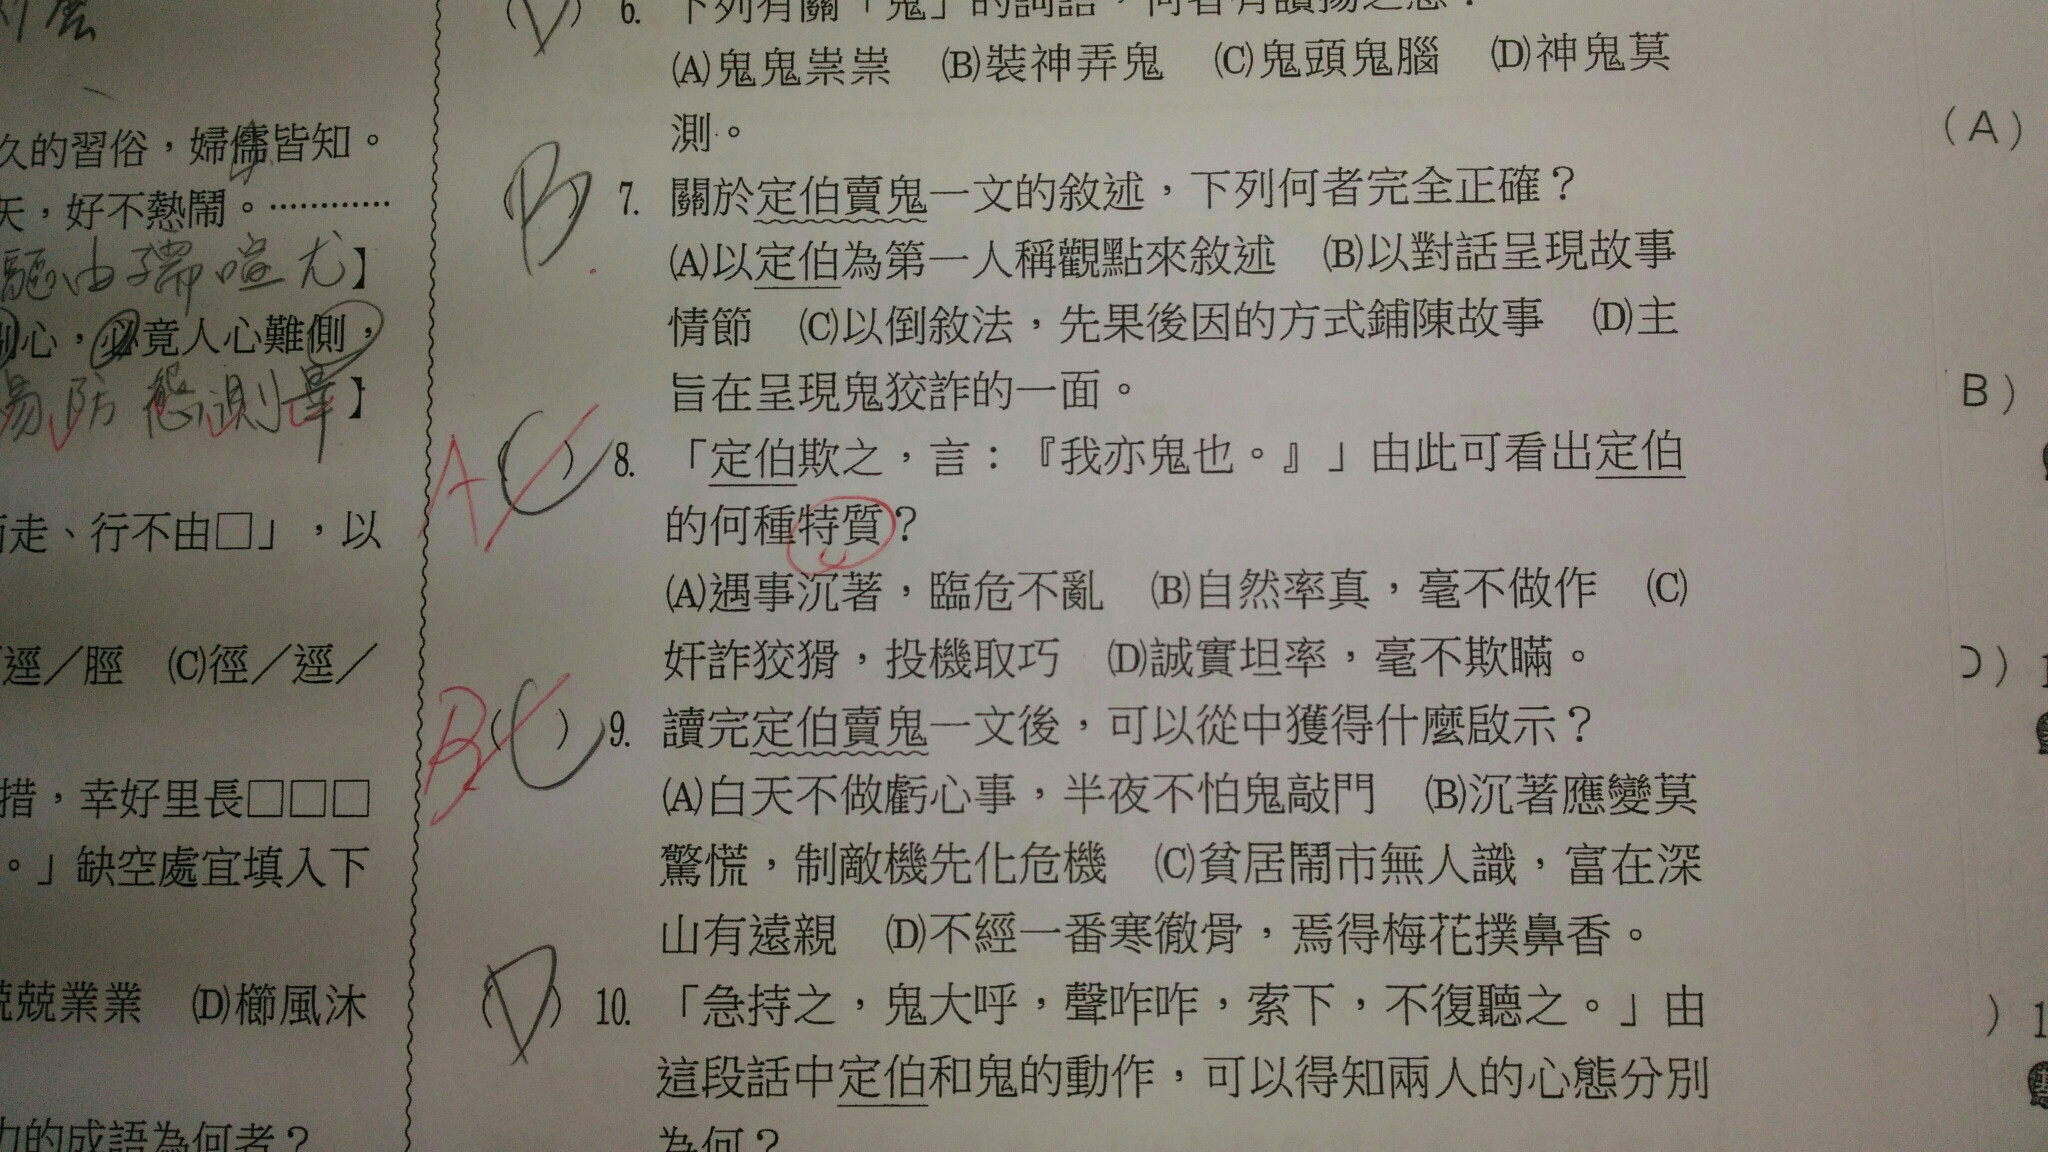 久的習俗，婦孺皆知。
天，好不熱鬧。…………
驅由孺喧尤】
心，必竟人心難側，
易防態測畢】
走、行不由□」，以
逕／脛　(C)徑／逕／
措，幸好里長□□□
。」缺空處宜填入下
兢業業　(D)櫛風沐
的成語為何者？
(D) 6. 下列有關「鬼」的詞語，何者有讚揚之意？
(A)鬼鬼祟祟　(B)裝神弄鬼　(C)鬼頭鬼腦　(D)神鬼莫
測。
(B) 7. 關於定伯賣鬼一文的敘述，下列何者完全正確？
(A)以定伯為第一人稱觀點來敘述　(B)以對話呈現故事
情節　(C)以倒敘法，先果後因的方式鋪陳故事　(D)主
旨在呈現鬼狡詐的一面。
A (C) 8. 「定伯欺之，言：『我亦鬼也。』」由此可看出定伯
的何種特質？
(A)遇事沉著，臨危不亂　(B)自然率真，毫不做作　(C)
奸詐狡猾，投機取巧　(D)誠實坦率，毫不欺瞞。
B (C) 9. 讀完定伯賣鬼一文後，可以從中獲得什麼啟示？
(A)白天不做虧心事，半夜不怕鬼敲門　(B)沉著應變莫
驚慌，制敵機先化危機　(C)貧居鬧市無人識，富在深
山有遠親　(D)不經一番寒徹骨，焉得梅花撲鼻香。
(D) 10. 「急持之，鬼大呼，聲咋咋，索下，不復聽之。」由
這段話中定伯和鬼的動作，可以得知兩人的心態分別
為何？
(A)
B)
D) 1
) 1